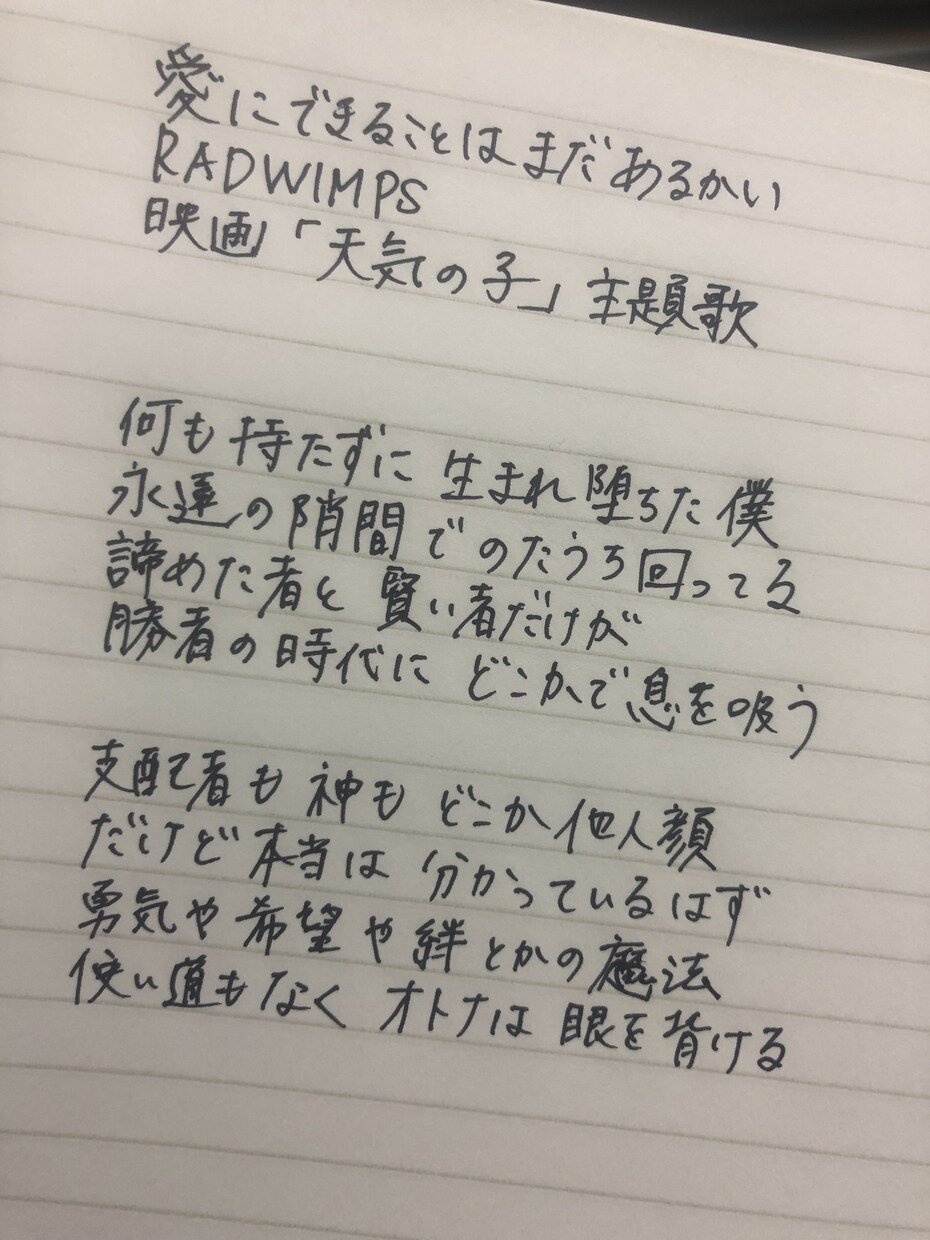 愛にできることは まだあるかい
RADWIMPS
映画「天気の子」主題歌
何も持たずに 生まれ堕ちた僕
永遠の隙間で のたうち回ってる
諦めた者と 賢い者だけが
勝者の時代に どこかで息を吸う
支配者も 神も どこか他人顔
だけど本当は 分かっているはず
勇気や希望や絆とかの魔法
使い道もなく オトナは眼を背ける